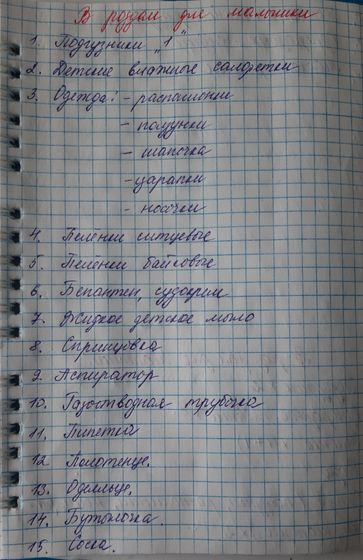 В роддом для малышки
1. Подгузники „1"
2. Детские влажные салфетки
3. Одежда: - распашонки
- ползунки
- шапочка
- царапки
- носочки
4. Пелёнки ситцевые
5. Пелёнки байковые
6. Бепантен, судокрем
7. Жидкое детское мыло
8. Спринцовка
9. Аспиратор
10. Газоотводная трубочка
11. Пипетка
12 Полотенце.
13. Одеяльце.
14. Бутылочка.
15 Соска.